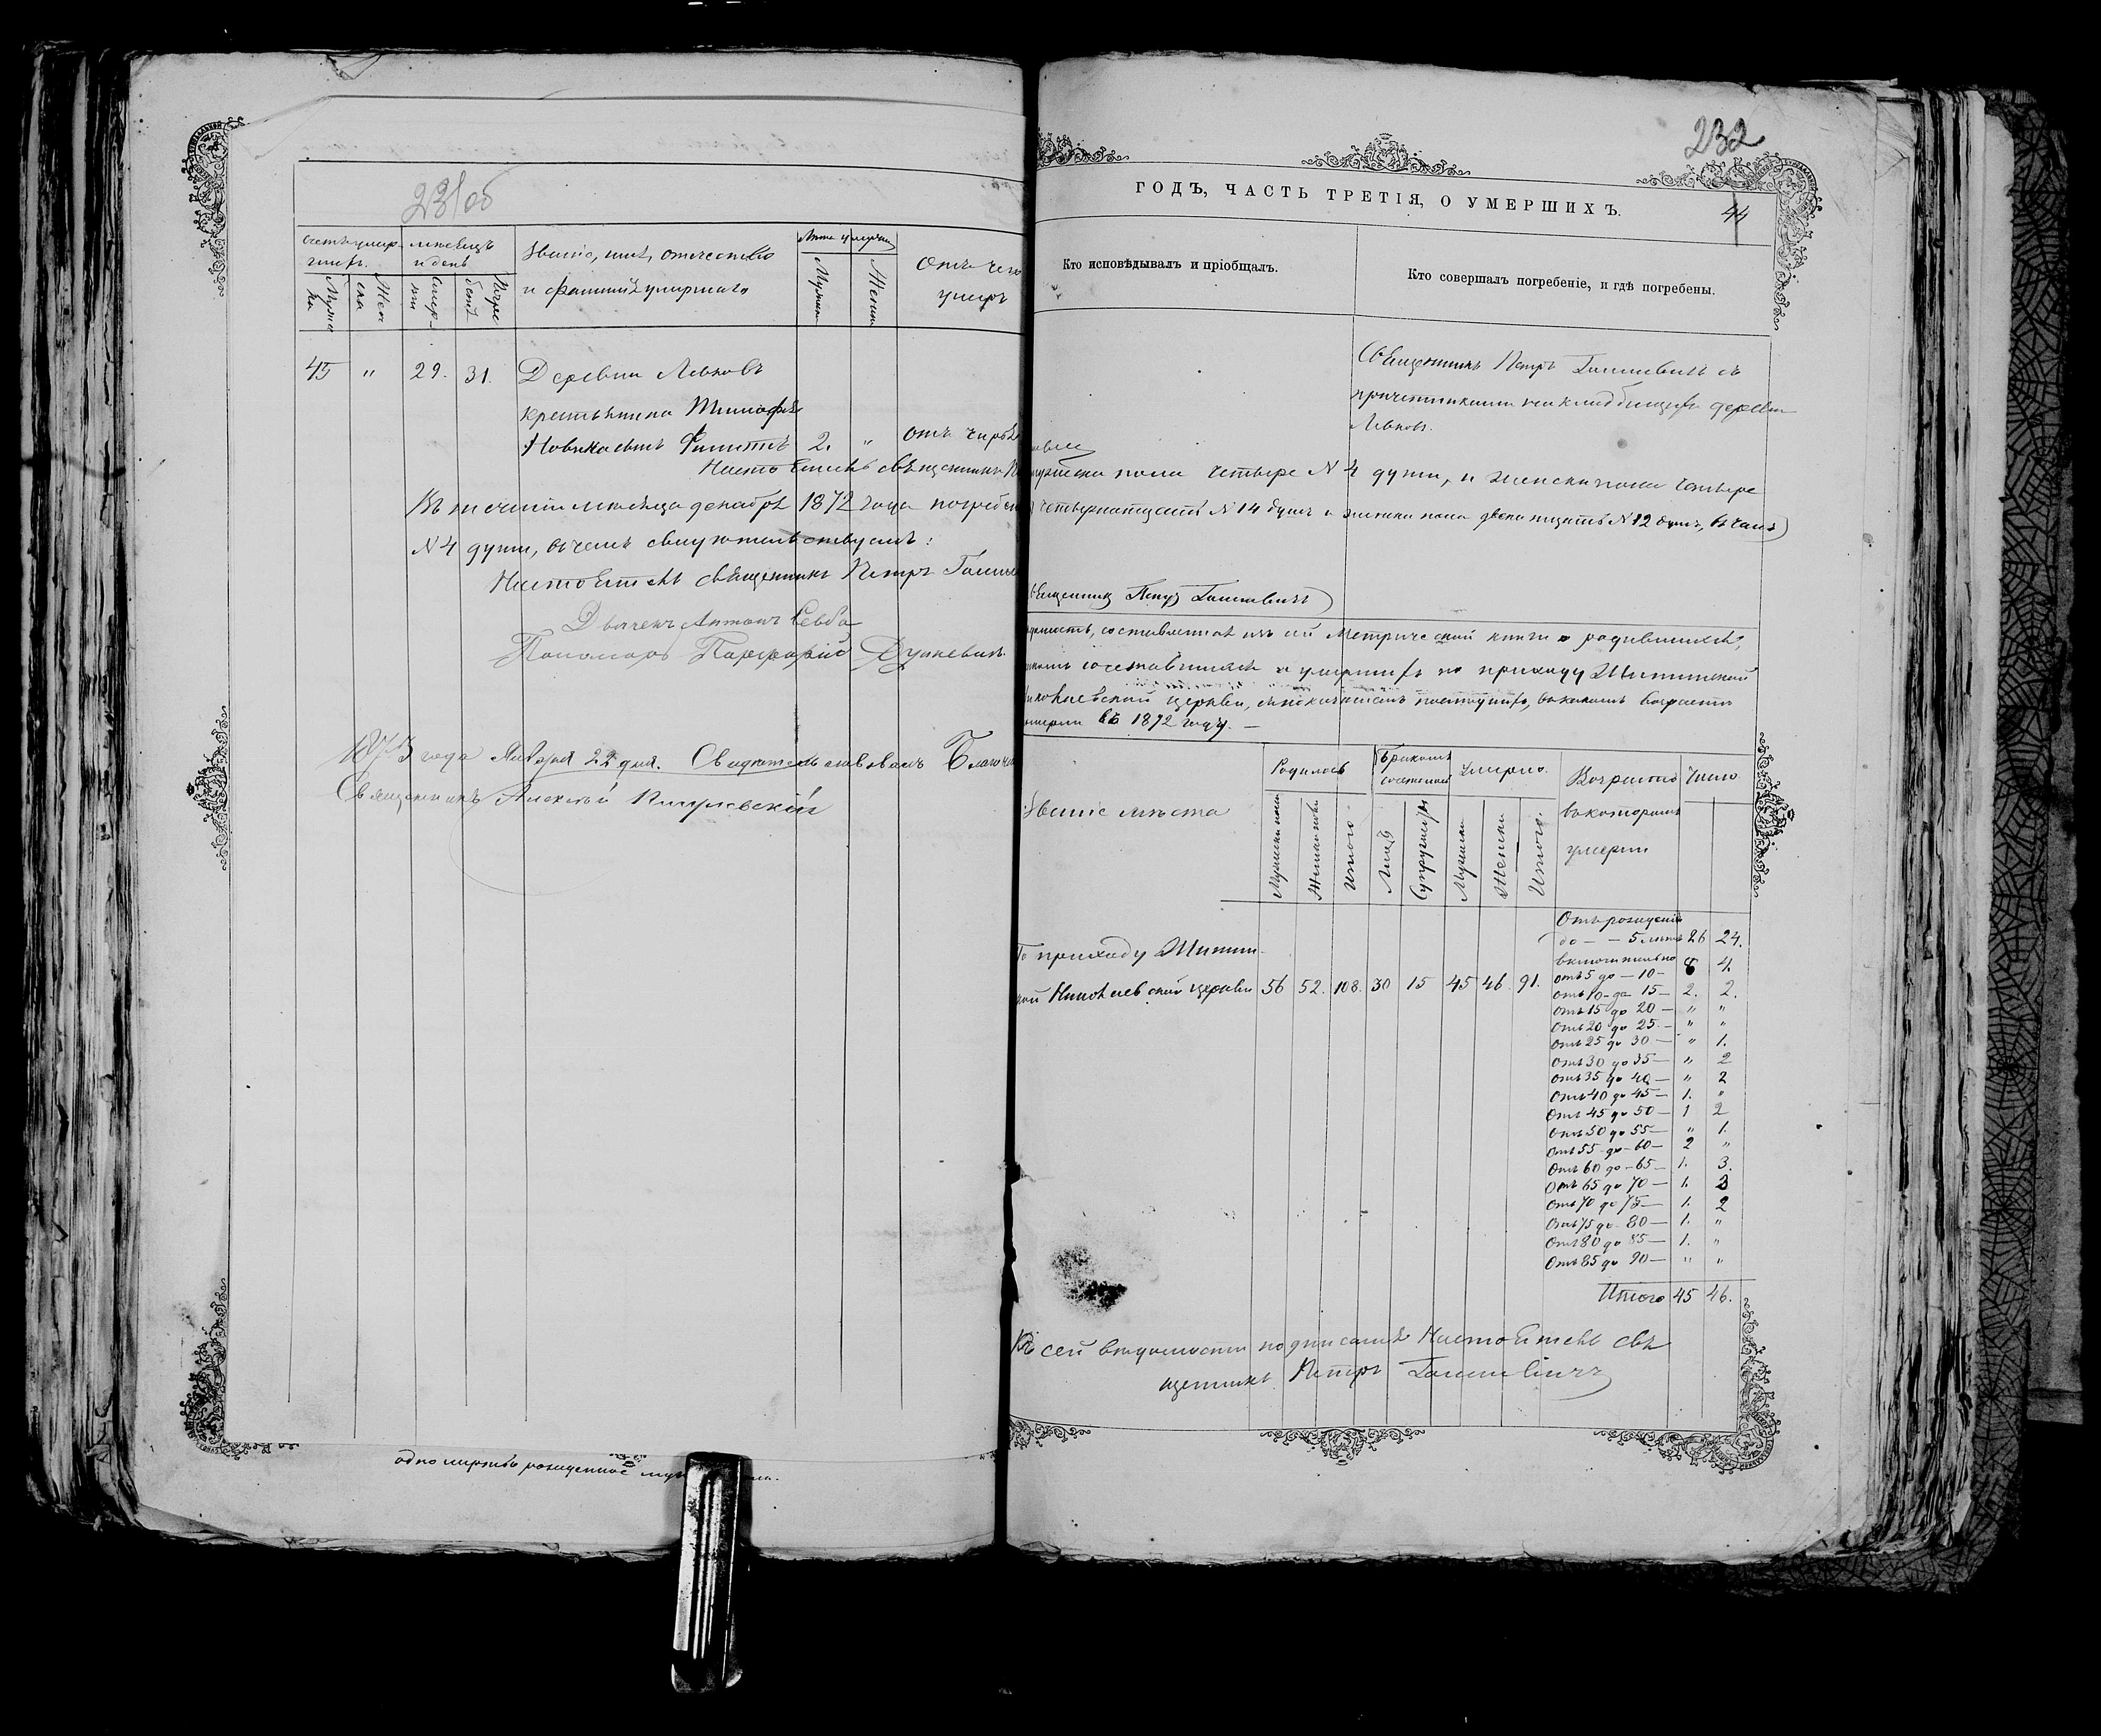 231 об
Счетъ умер-
шихъ.
Муже
ска
Жен
ска
Мѣсяцъ
и день
Смер-
ти
Погре
бенія
Званіе, имя, отчество
и фамилія умершаго
Лѣта умерш
Мужеск
Женск
Отъ чего
умеръ
45 " 29. 31. Деревни Левковъ
крестьянина Тимофея
сынъ Филиппъ 2. " отъ
Настоятель священникъ
Въ теченіи мѣсяца декабря 1872 года погребено
№ 4 души, въ чемъ свидѣтельствуемъ:
Настоятель священникъ Петръ
Дьячекъ Антонъ
Пономарь Порфирій
1873 года Января 22 дня. Свидѣтельствовалъ Благоч
Священникъ Алексѣй
одно мертво рожденное
232
44
ГОДЪ, ЧАСТЬ ТРЕТІЯ, О УМЕРШИХЪ.
Кто исповѣдывалъ и пріобщалъ.
Кто совершалъ погребеніе, и гдѣ погребены.
Священникъ Петръ съ
причетниками на кладбищѣ деревни
Левковъ.
мужеска пола четыре № 4 души, и женска пола четыре
четырнатцать № 14 душъ и женска пола двенатцать № 12 душъ, въ чемъ
священникъ Петръ
составленная изъ сей Метрической книги о родившихся,
сочетавшихся и умершихъ по приходу
Николаевской церкви,
умерли въ 1872 году. —
Званіе мѣста
Родилось
Мужеска пола
Женска пола
Итого
Бракомъ
сочеталось
Лицъ
Супружествъ
Умерло.
Мужеска
Женска
Итого.
Возрастъ
въ которомъ
умерли
Число
По приходу
Николаевской церкви 56 52. 108. 30 15 45 46 91.
Отъ рожденія
до — — 5 лѣтъ 26 24.
включительно
отъ 5 до — 10 — 8 4.
отъ 10 — до 15 — 2. 2.
отъ 15 до 20 — " "
отъ 20 до 25 — " "
отъ 25 до 30 — " 1.
отъ 30 до 35 — " 2
отъ 35 до 40 — " 2
отъ 40 до 45 — 1. "
отъ 45 до 50 — 1 2
отъ 50 до 55 — " 1.
отъ 55 до — 60 — 2 "
отъ 60 до — 65 — 1. 3.
отъ 65 до 70 — 1. 3
отъ 70 до 75 — 1. 2
отъ 75 до 80 — 1. "
отъ 80 до 85 — 1. "
отъ 85 до 90 — " "
Итого 45 46.
Къ сей вѣдомости подписался Настоятель свя
щенникъ Петръ